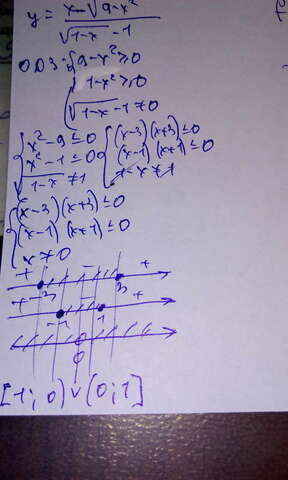 y = (x-√(9-x²))/(√(1-x) -1)
ОДЗ: { 9-x² ≥ 0
1-x² ≥ 0
√(1-x) -1 ≠ 0
{ x²-9 ≤ 0 { (x-3)(x+3) ≤ 0
x²-1 ≤ 0 (x-1)(x+1) ≤ 0
√(1-x) ≠ 1 1-x ≠ 1
{ (x-3)(x+3) ≤ 0
(x-1)(x+1) ≤ 0
x ≠ 0
+ - +
-3 3
+ - +
-1 1
0
[-1; 0) ∪ (0; 1]